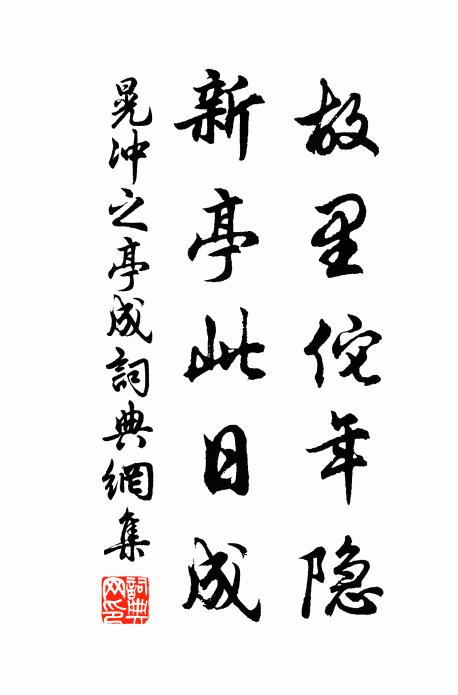 故里佗年隐
新亭此日成
晁冲之亭成詞典網集
詞典網印